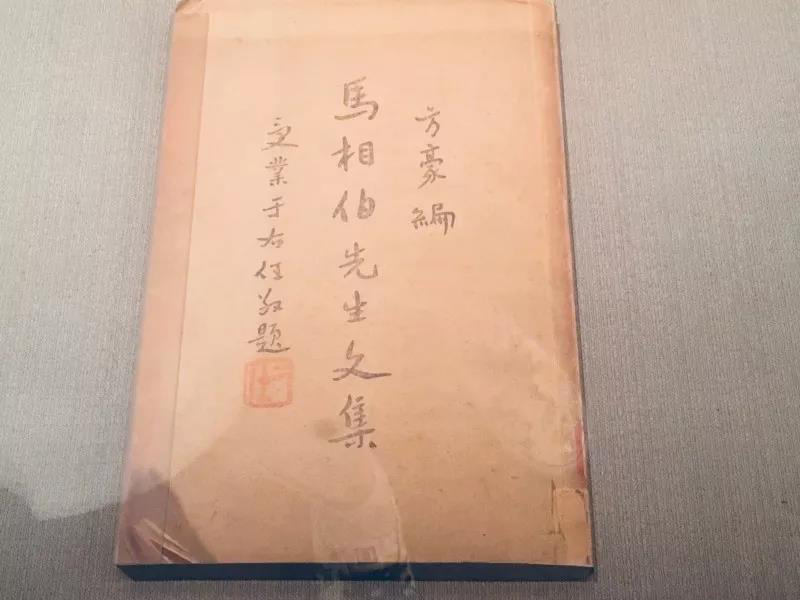 方豪編
馬相伯先生文集
受業于右任敬題